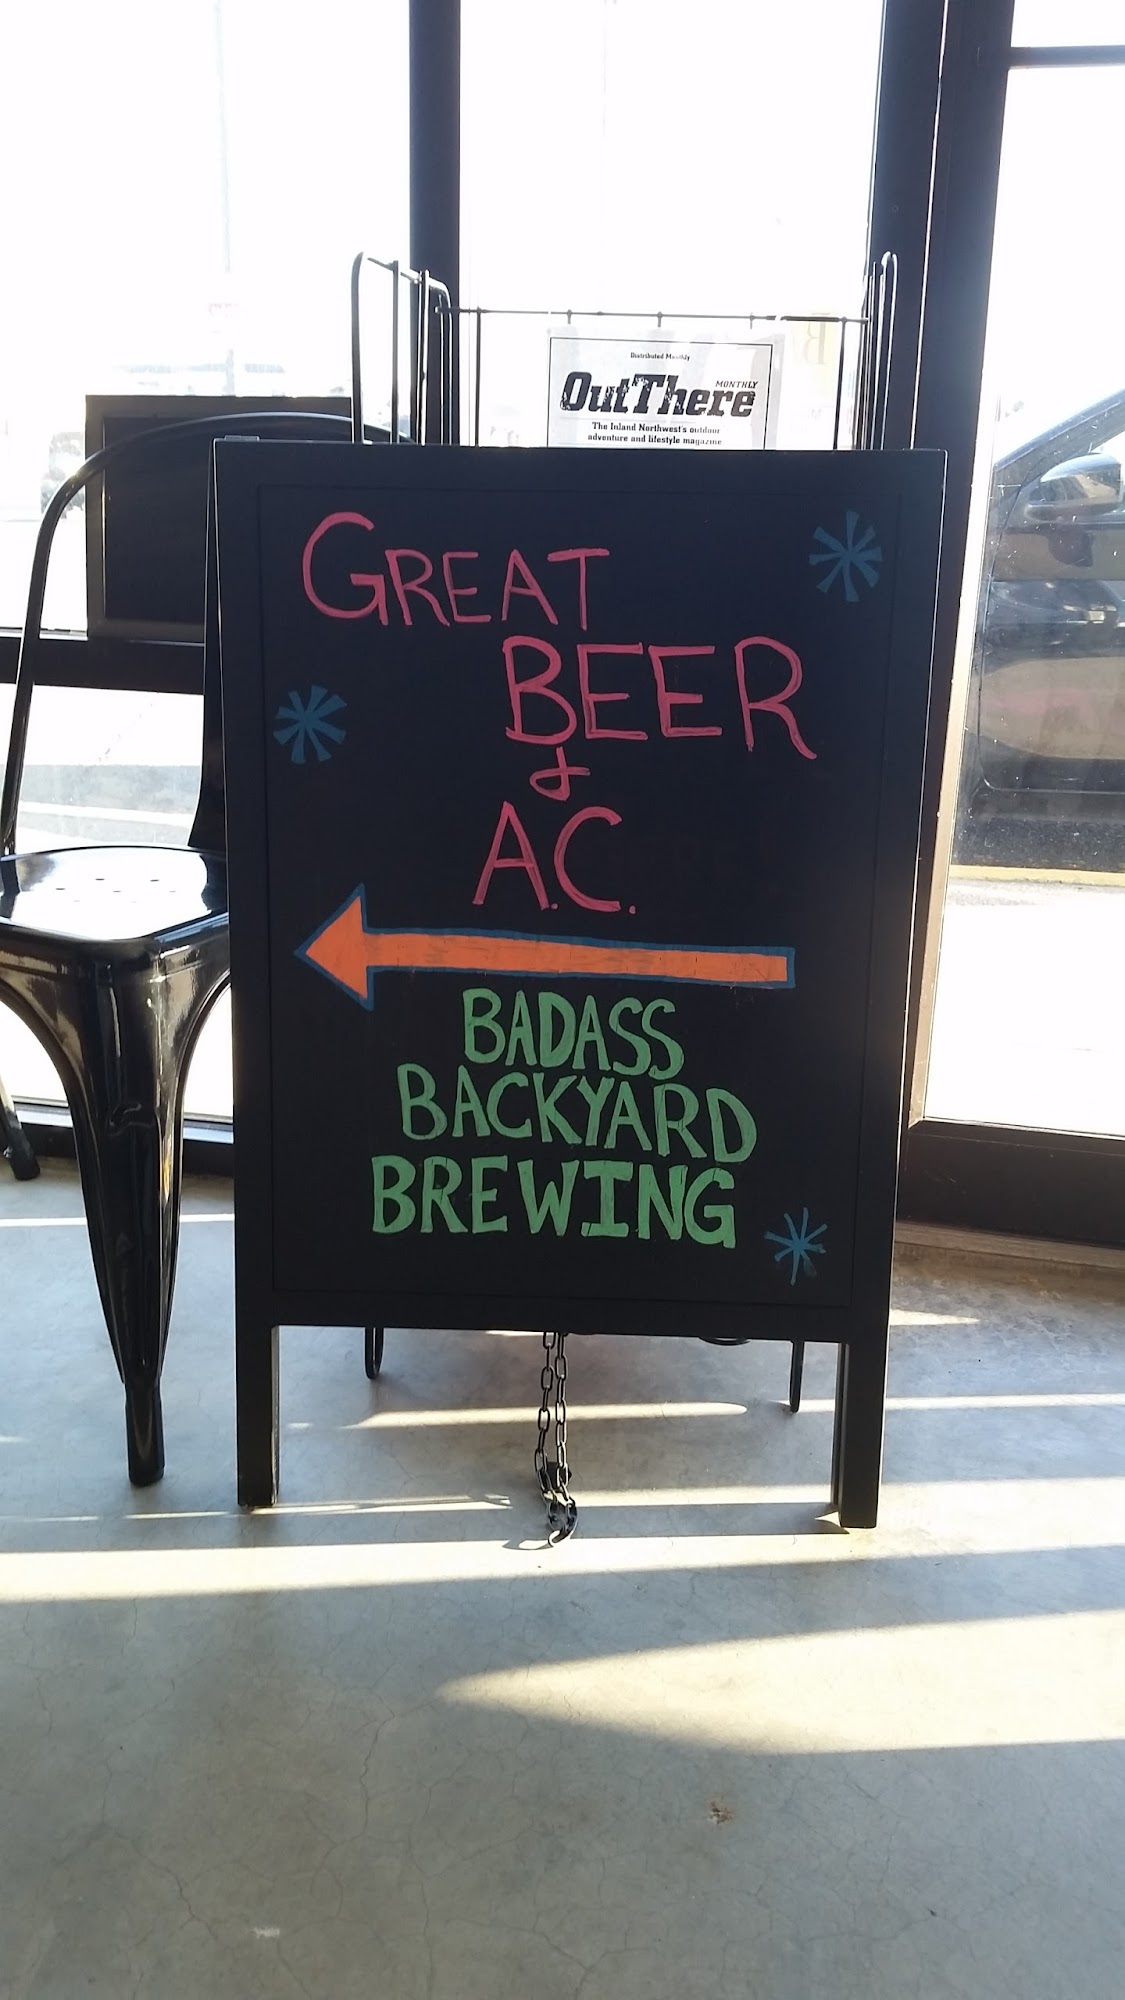 Distributed Monthly
OutThere MONTHLY
The Inland Northwest's outdoor
adventure and lifestyle magazine
GREAT
BEER
&
A.C.
BADASS
BACKYARD
BREWING